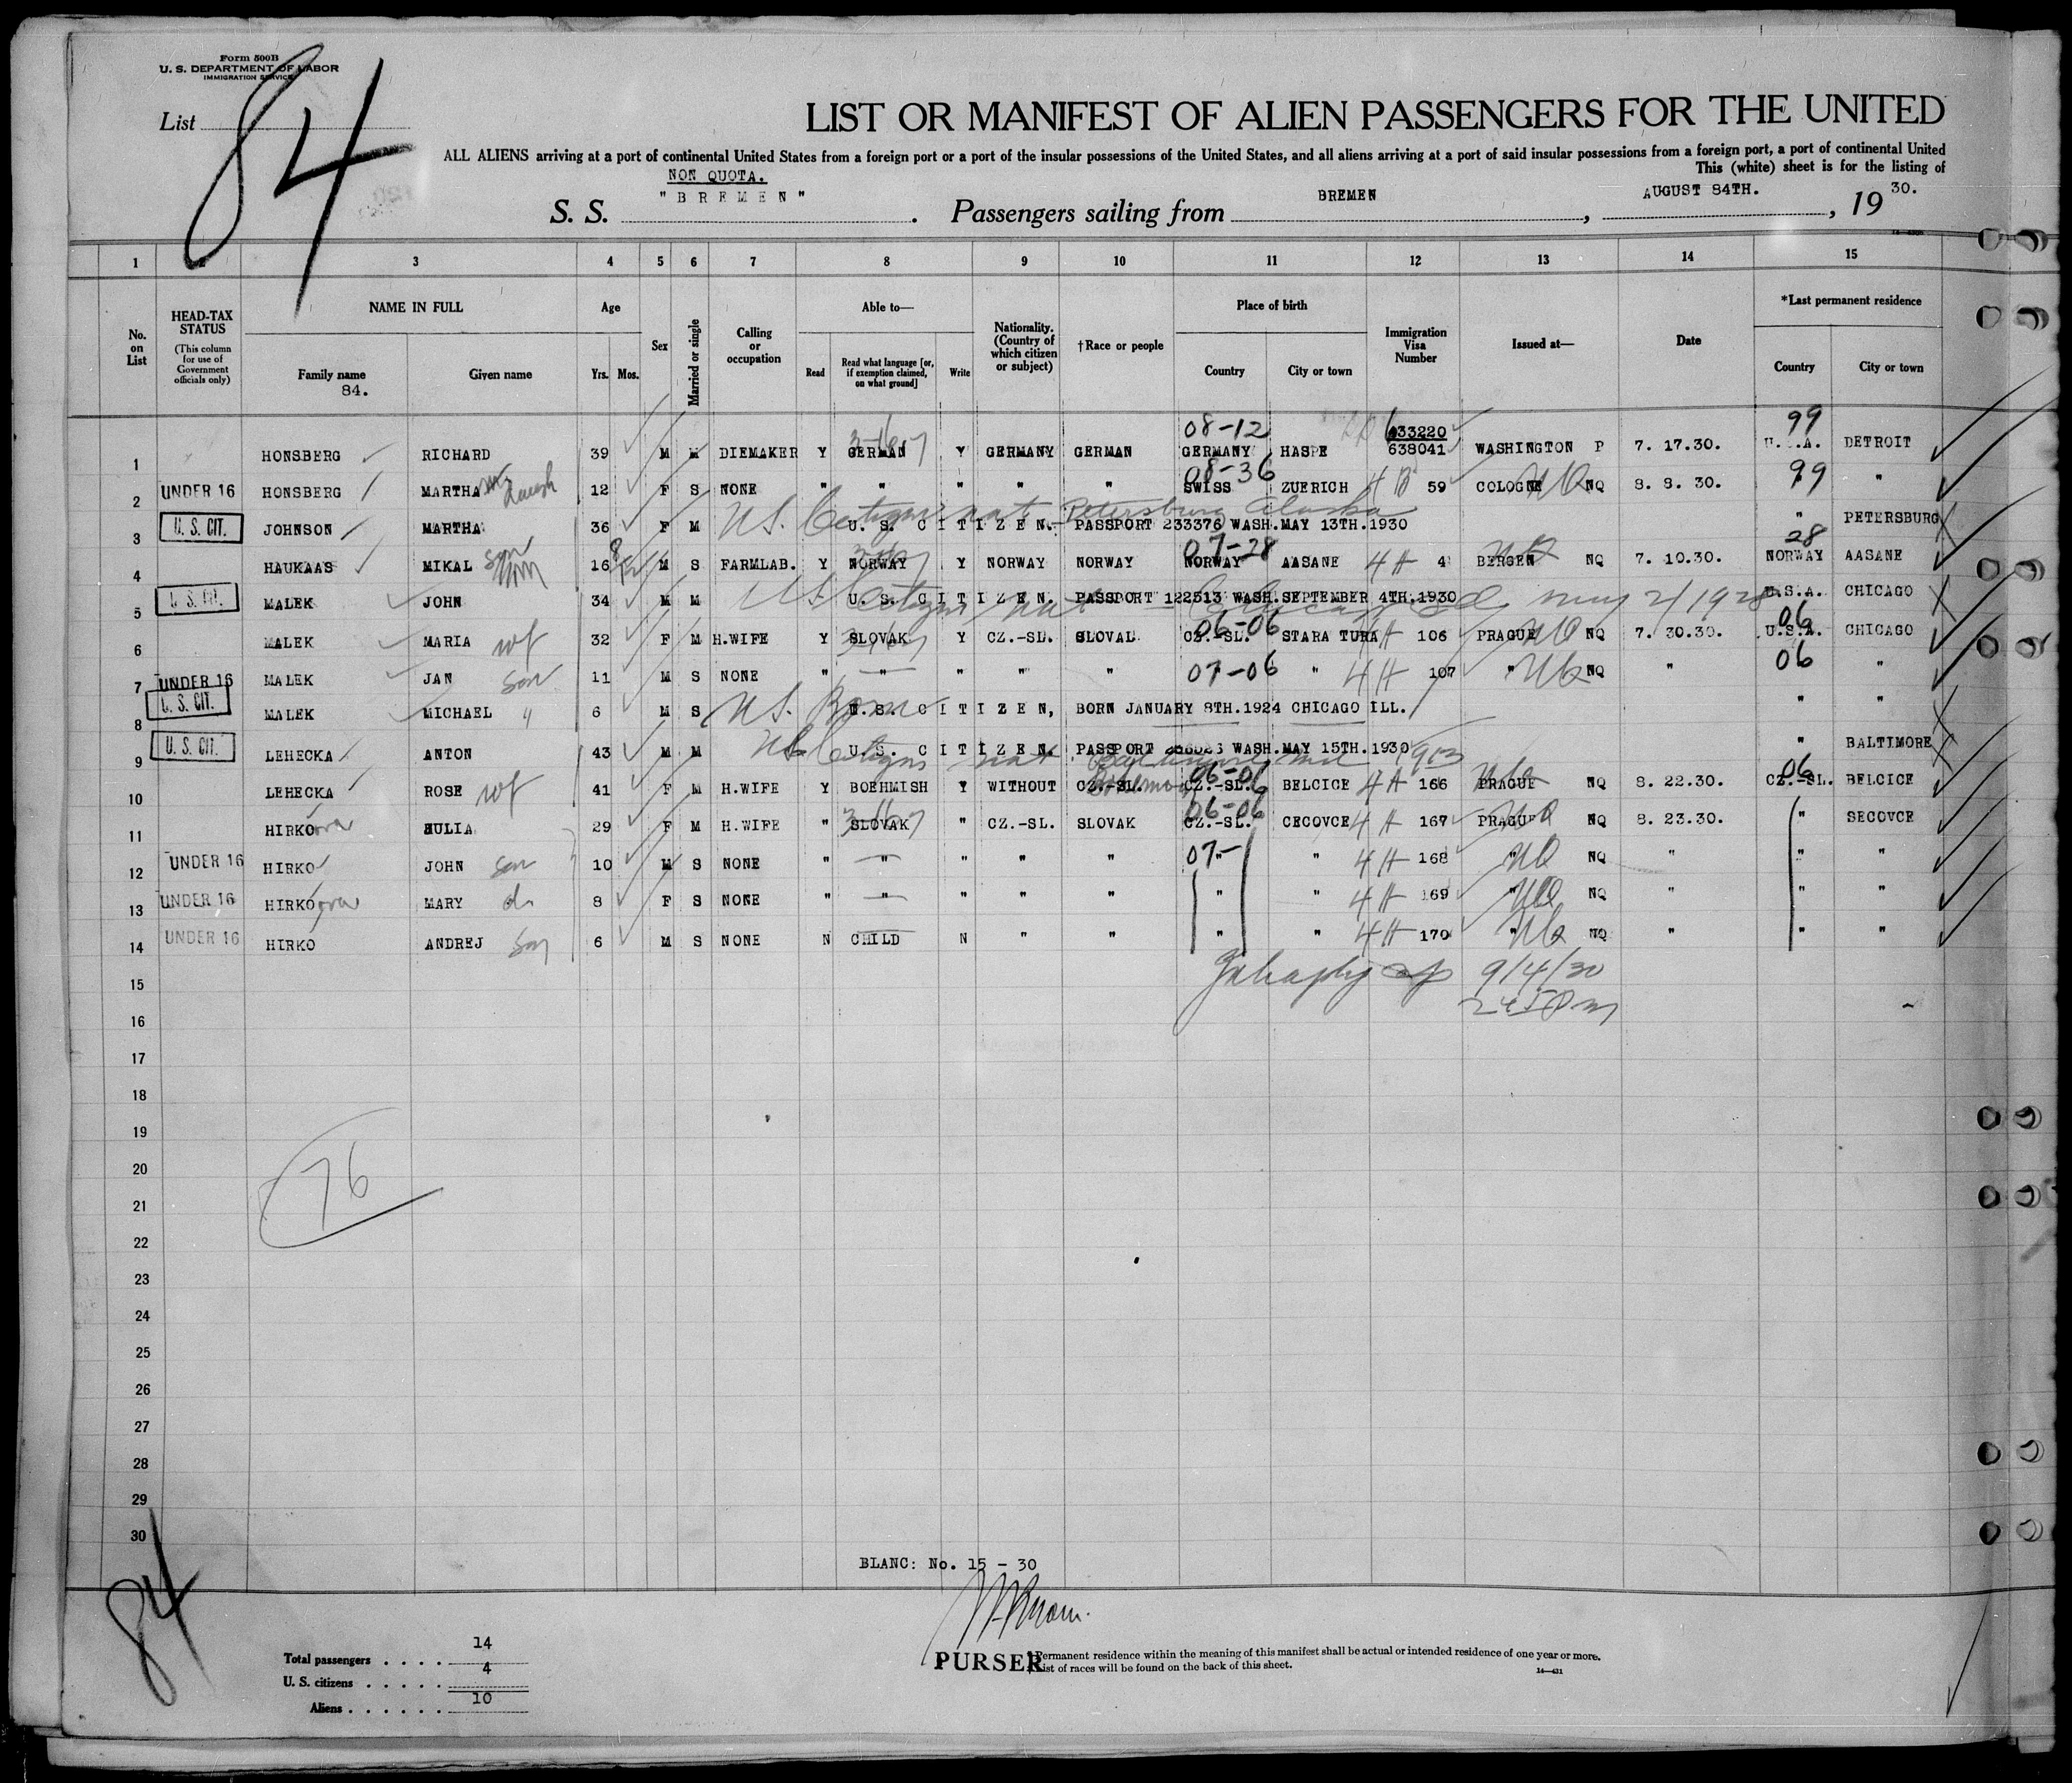 Form 500B
U. S. DEPARTMENT OF LABOR
IMMIGRATION SERVICE
List 84
LIST OR MANIFEST OF ALIEN PASSENGERS FOR THE UNITED
ALL ALIENS arriving at a port of continental United States from a foreign port or a port of the insular possessions of the United States, and all aliens arriving at a port of said insular possessions from a foreign port, a port of continental United
This (white) sheet is for the listing of
NON QUOTA.
S. S. "BREMEN". Passengers sailing from BREMEN, AUGUST 84TH., 19 30.
1 2 3 4 5 6 7 8 9 10 11 12 13 14 15
No. on List HEAD-TAX STATUS (This column for use of Government officials only) NAME IN FULL Family name 84. Given name Age Yrs. Mos. Sex Married or single Calling or occupation Able to— Read Read what language [or, if exemption claimed, on what ground] Write Nationality. (Country of which citizen or subject) †Race or people Place of birth Country City or town Immigration Visa Number Issued at— Date *Last permanent residence Country City or town
08-12 633220 99
1 HONSBERG RICHARD 39 M M DIEMAKER Y GERMAN Y GERMANY GERMAN GERMANY HASPE 638041 WASHINGTON P 7. 17.30. U.S.A. DETROIT
08-36 99
2 UNDER 16 HONSBERG MARTHA 12 F S NONE " " " " " SWISS ZUERICH 59 COLOGNE NQ 8. 8. 30. " "
U.S. Citizen nat Petersburg Alaska
3 U. S. CIT. JOHNSON MARTHA 36 F M U. S. CITIZEN.- PASSPORT 233376 WASH.MAY 13TH.1930 " PETERSBURG
07-28 28
4 HAUKAAS MIKAL son 16 M S FARMLAB. Y NORWAY Y NORWAY NORWAY NORWAY AASANE 4A 4 BERGEN NQ 7. 10.30. NORWAY AASANE
5 U. S. CIT. MALEK JOHN 34 M M U. S. CITIZEN. PASSPORT 122513 WASH.SEPTEMBER 4TH.1930 U.S.A. CHICAGO
06-06 06
6 MALEK MARIA wf 32 F M H.WIFE Y SLOVAK Y CZ.-SL. SLOVAL CZ.-SL. STARA TURA 106 PRAGUE NQ 7. 30.30. U.S.A. CHICAGO
7 UNDER 16 MALEK JAN son 11 M S NONE " " " " " 07-06 " 4A 107 " NQ " 06 "
8 U. S. CIT. MALEK MICHAEL " 6 M S U.S. Born U. S. CITIZEN, BORN JANUARY 8TH.1924 CHICAGO ILL. " "
9 U. S. CIT. LEHECKA ANTON 43 M M U. S. CITIZEN. PASSPORT WASH.MAY 15TH.1930 " BALTIMORE
06-06 06
10 LEHECKA ROSE wf 41 F M H.WIFE Y BOEHMISH Y WITHOUT CZ.-SL. CZ.-SL. BELCICE 4A 166 PRAGUE NQ 8. 22.30. CZ.-SL. BELCICE
06-06
11 HIRKO JULIA 29 F M H.WIFE " SLOVAK " CZ.-SL. SLOVAK CZ.-SL. CECOVCE 4A 167 PRAGUE NQ 8. 23.30. " SECOVCE
12 UNDER 16 HIRKO JOHN son 10 M S NONE " " " " " 07- " 4A 168 " NQ " " "
13 UNDER 16 HIRKO MARY 8 F S NONE " " " " " " " 4A 169 " NQ " " "
14 UNDER 16 HIRKO ANDREJ son 6 M S NONE N CHILD N " " " " 4A 170 " NQ " " "
15 9/4/30
16
17
18
19
20 76
21
22
23
24
25
26
27
28
29
30
BLANC: No. 15 - 30
84
Total passengers . . . . 14
U. S. citizens . . . . . 4
Aliens . . . . . . 10
PURSER
Permanent residence within the meaning of this manifest shall be actual or intended residence of one year or more.
List of races will be found on the back of this sheet.
14—431